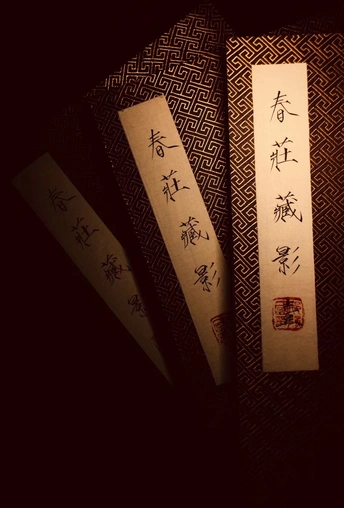 春莊藏影
春莊藏影
春莊藏影